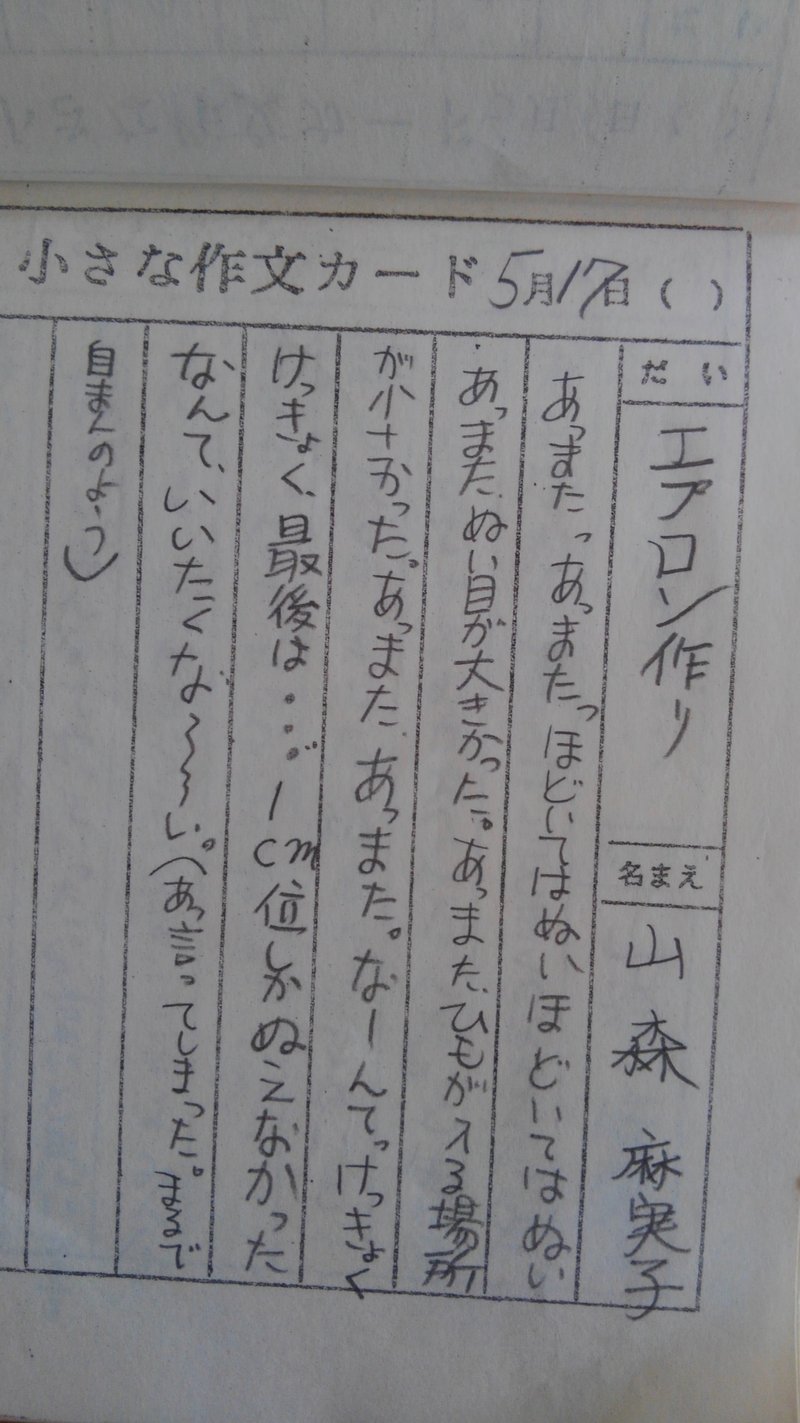 小さな作文カード 5月17日（ ）
だい エプロン作り
名まえ 山森麻実子
あっまたっあっまたっほどいてはぬいほどいてはぬい
あっまた、ぬい目が大きかった。あっまた、ひもが入る場所
が小さかった。あっまた、あっまた。なーんてっけっきょく
けっきょく、最後は・・・1cm位しかぬえなかった
なんて、いいたくな～～～い。（あっ言ってしまった。まるで
自まんのよう）